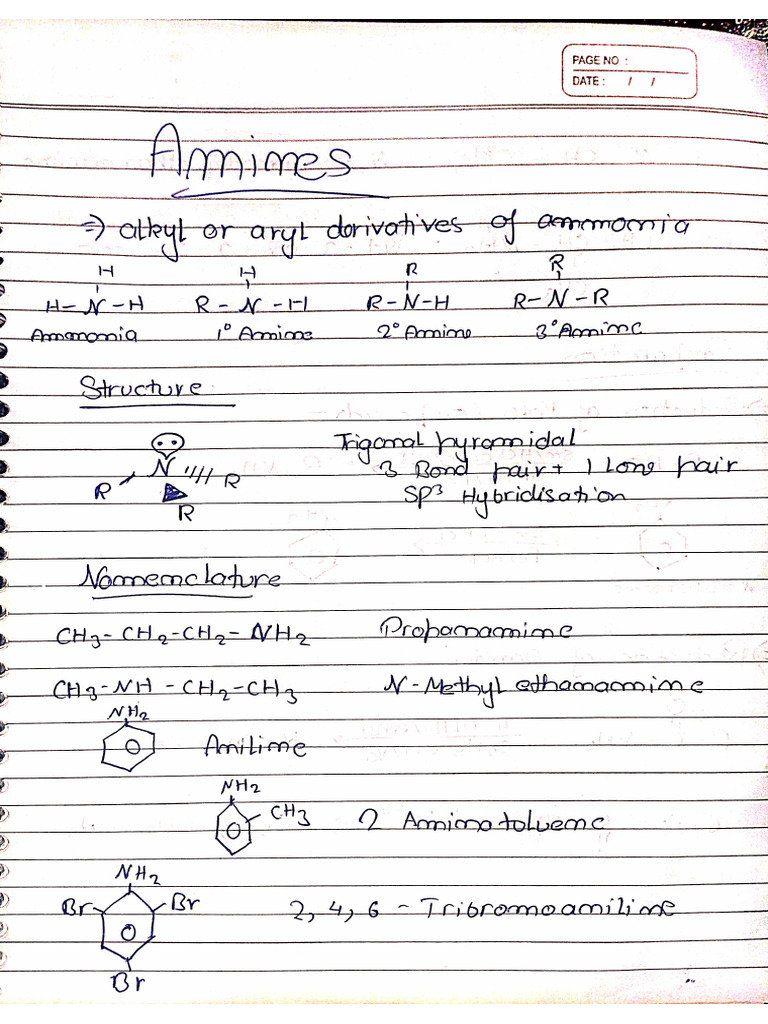 PAGE NO :
DATE : / /
Amines
⇒ alkyl or aryl derivatives of ammonia
H H R R
H-N-H R-N-H R-N-H R-N-R
Ammonia 1° Amine 2° Amine 3° Amine
Structure
N Trigonal pyramidal
R R 3 Bond pair + 1 Lone pair
R SP³ Hybridisation
Nomenclature
CH3-CH2-CH2-NH2 Propanamine
CH3-NH-CH2-CH3 N-Methyl ethanamine
NH2
Aniline
NH2
CH3 2 Aminotoluene
NH2
Br Br 2, 4, 6 - Tribromoaniline
Br